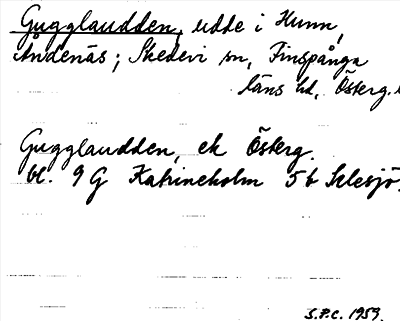 Gugglaudden, udde i Hunn,
Åndenäs; Skedevi sn, Finspånga
läns hd, Österg. l
Gugglaudden, ek Österg.
bl. 9 G Katrineholm 5 b Sklesjö,
S.F.C. 1959.